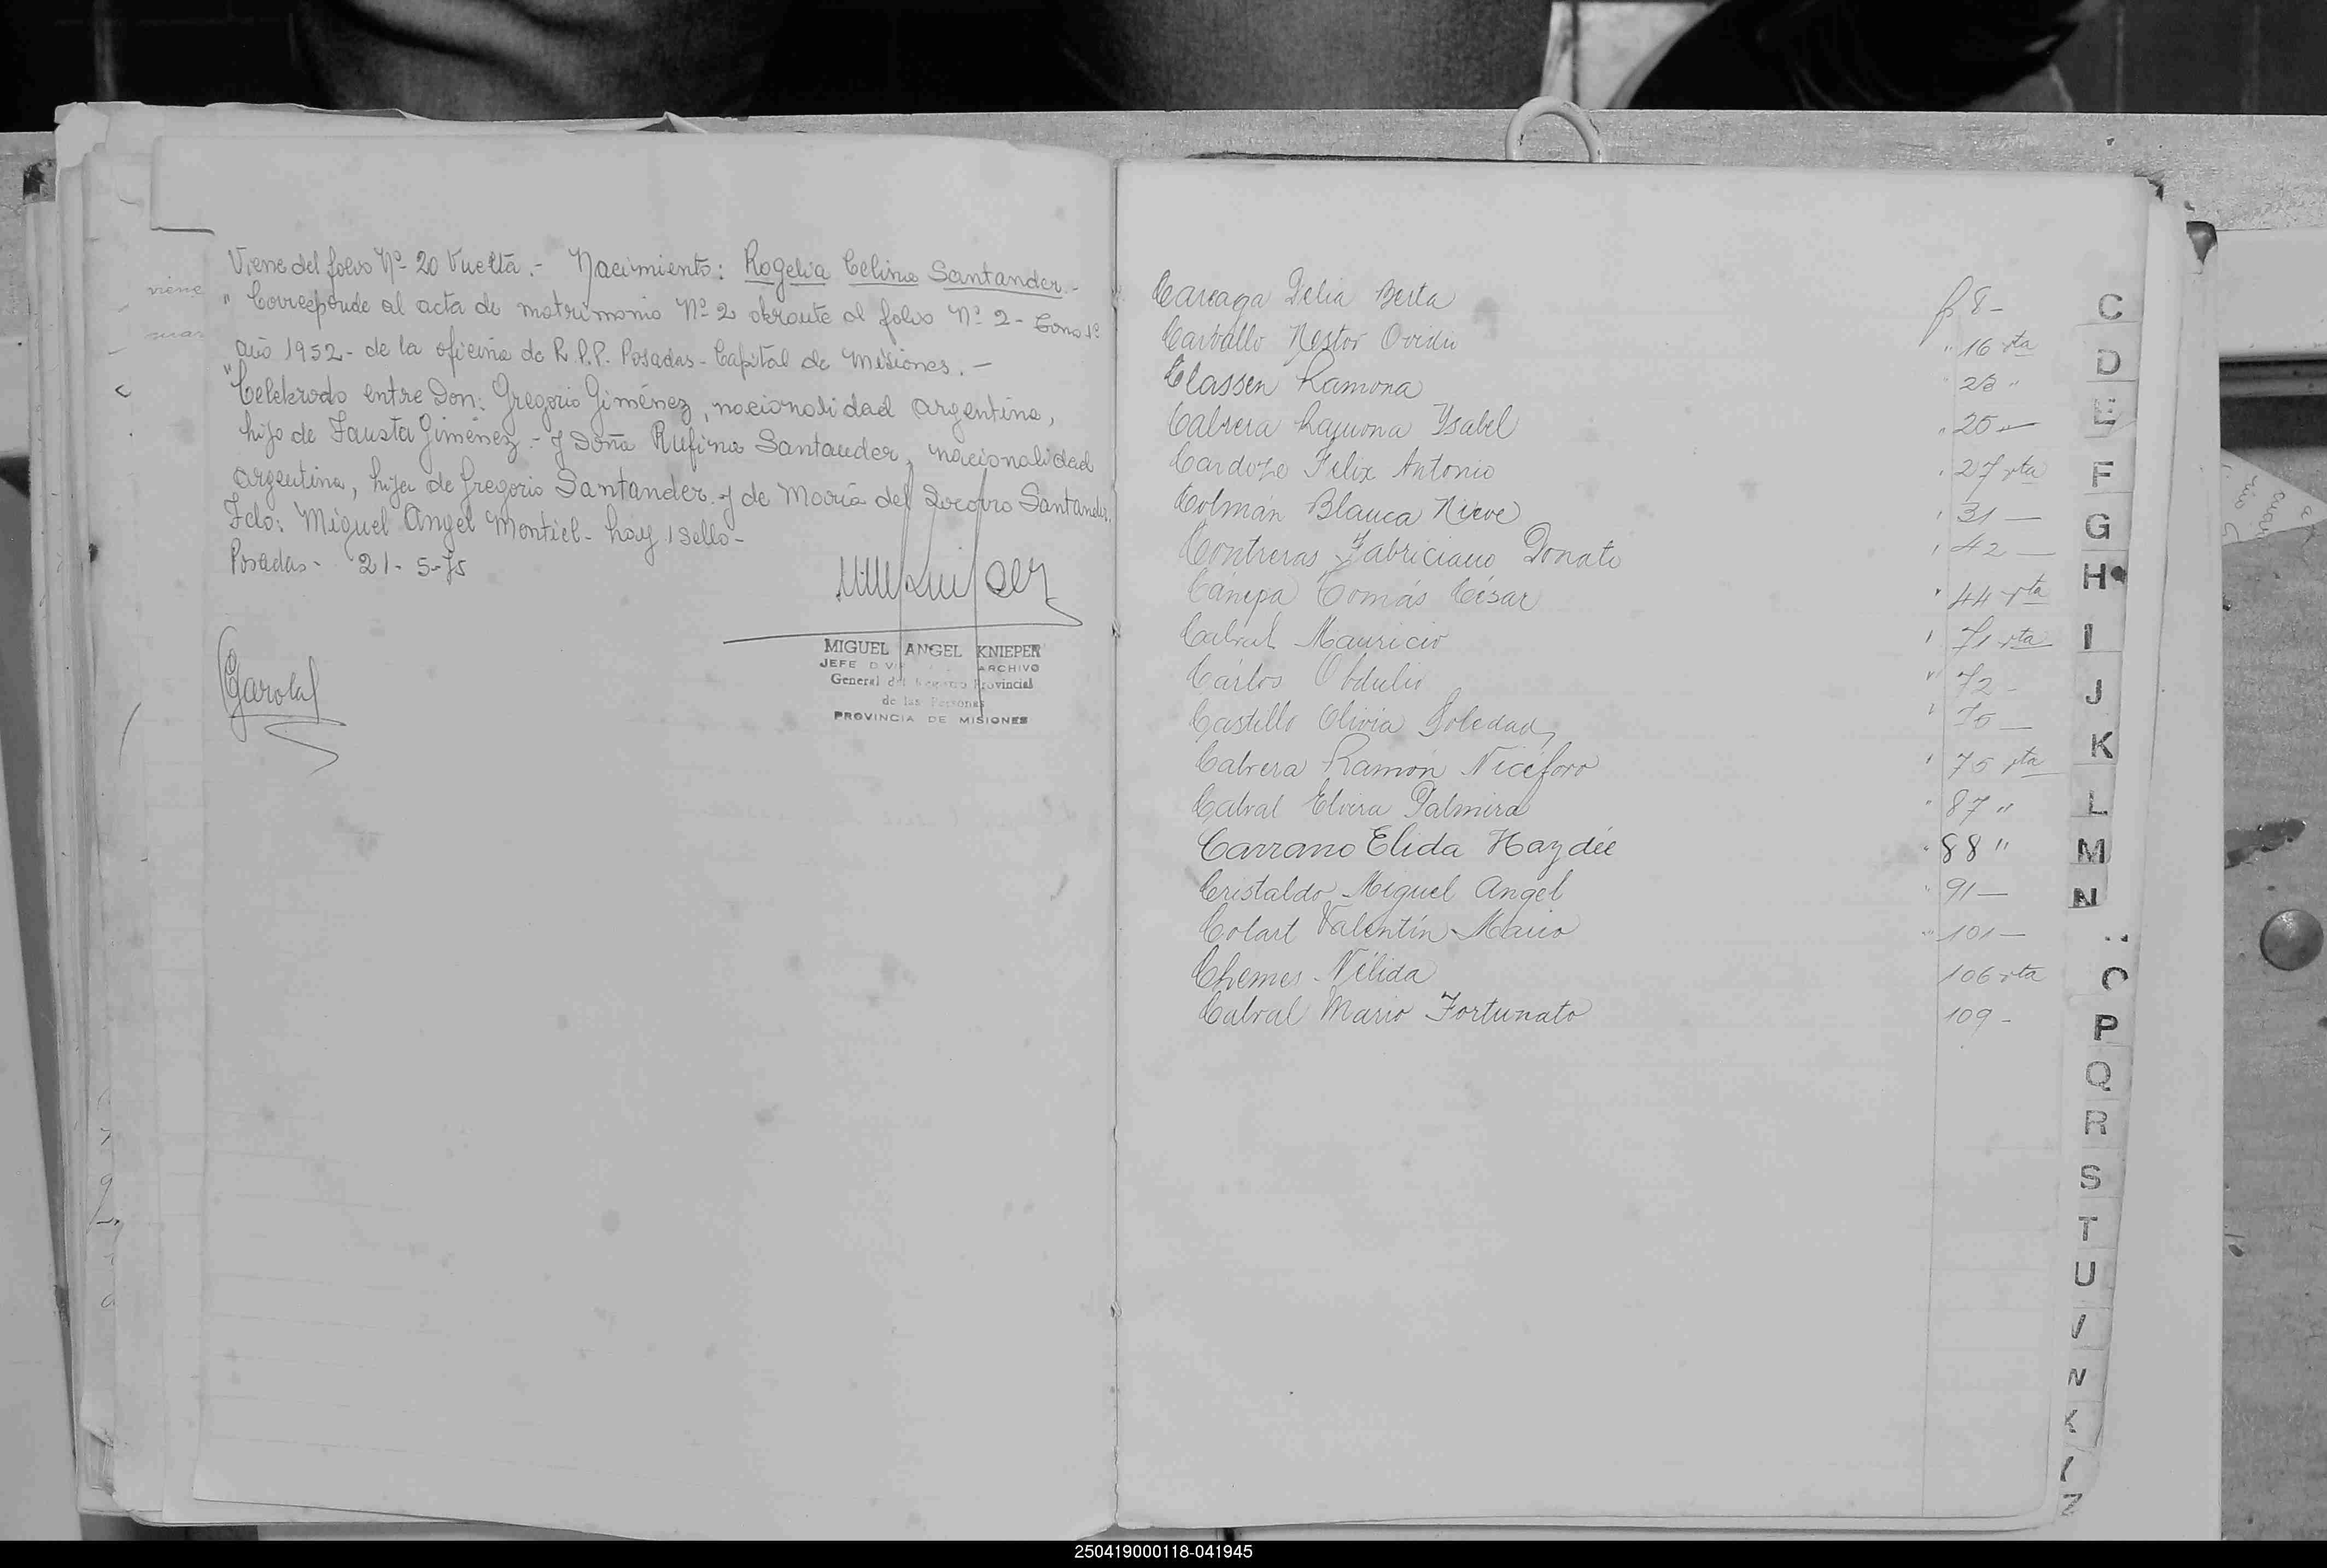 Viene del folio Nº 20 Vuelta.- Nacimiento: Rogelia Celina Santander.-
" Corresponde al acta de matrimonio Nº 2 obrante al folio Nº 2 - Tomo 1º
año 1952 - de la oficina de R.P.P. Posadas - Capital de Misiones.-
"Celebrado entre Don: Gregorio Giménez, nacionalidad argentina,
hijo de Fausta Giménez.- y Doña Rufina Santander, nacionalidad
argentina, hija de Gregorio Santander y de María del Socorro Santander.
Fdo: Miguel Angel Montiel - hay 1 sello -
Posadas - 21-5-75
MIGUEL ANGEL KNIEPER
JEFE ARCHIVO
General del Registro Provincial
de las Personas
PROVINCIA DE MISIONES
viene
Careaga Delia Berta f. 8 -
Carballo Nestor Ovidio " 16 vta
Classen Ramona " 23 "
Cabrera Ramona Ysabel " 25 -
Cardozo Felix Antonio " 27 vta
Colmán Blanca Nieve " 31 -
Contreras Fabriciano Donato " 42 -
Cánepa Tomás César " 44 vta
Cabral Mauricio " 71 vta
Cárlos Obdulio " 72 -
Castillo Olivia Soledad " 75 -
Cabrera Ramón Nicéforo " 75 vta
Cabral Elvira Palmira " 87 "
Carrano Elida Haydée " 88 "
Cristaldo Miguel Angel " 91 -
Colart Valentín Mario " 101 -
Chemes Nélida 106 vta
Cabral Mario Fortunato 109 -
C
D
E
F
G
H
I
J
K
L
M
N
O
P
Q
R
S
T
U
V
W
X
Y
Z
250419000118-041945